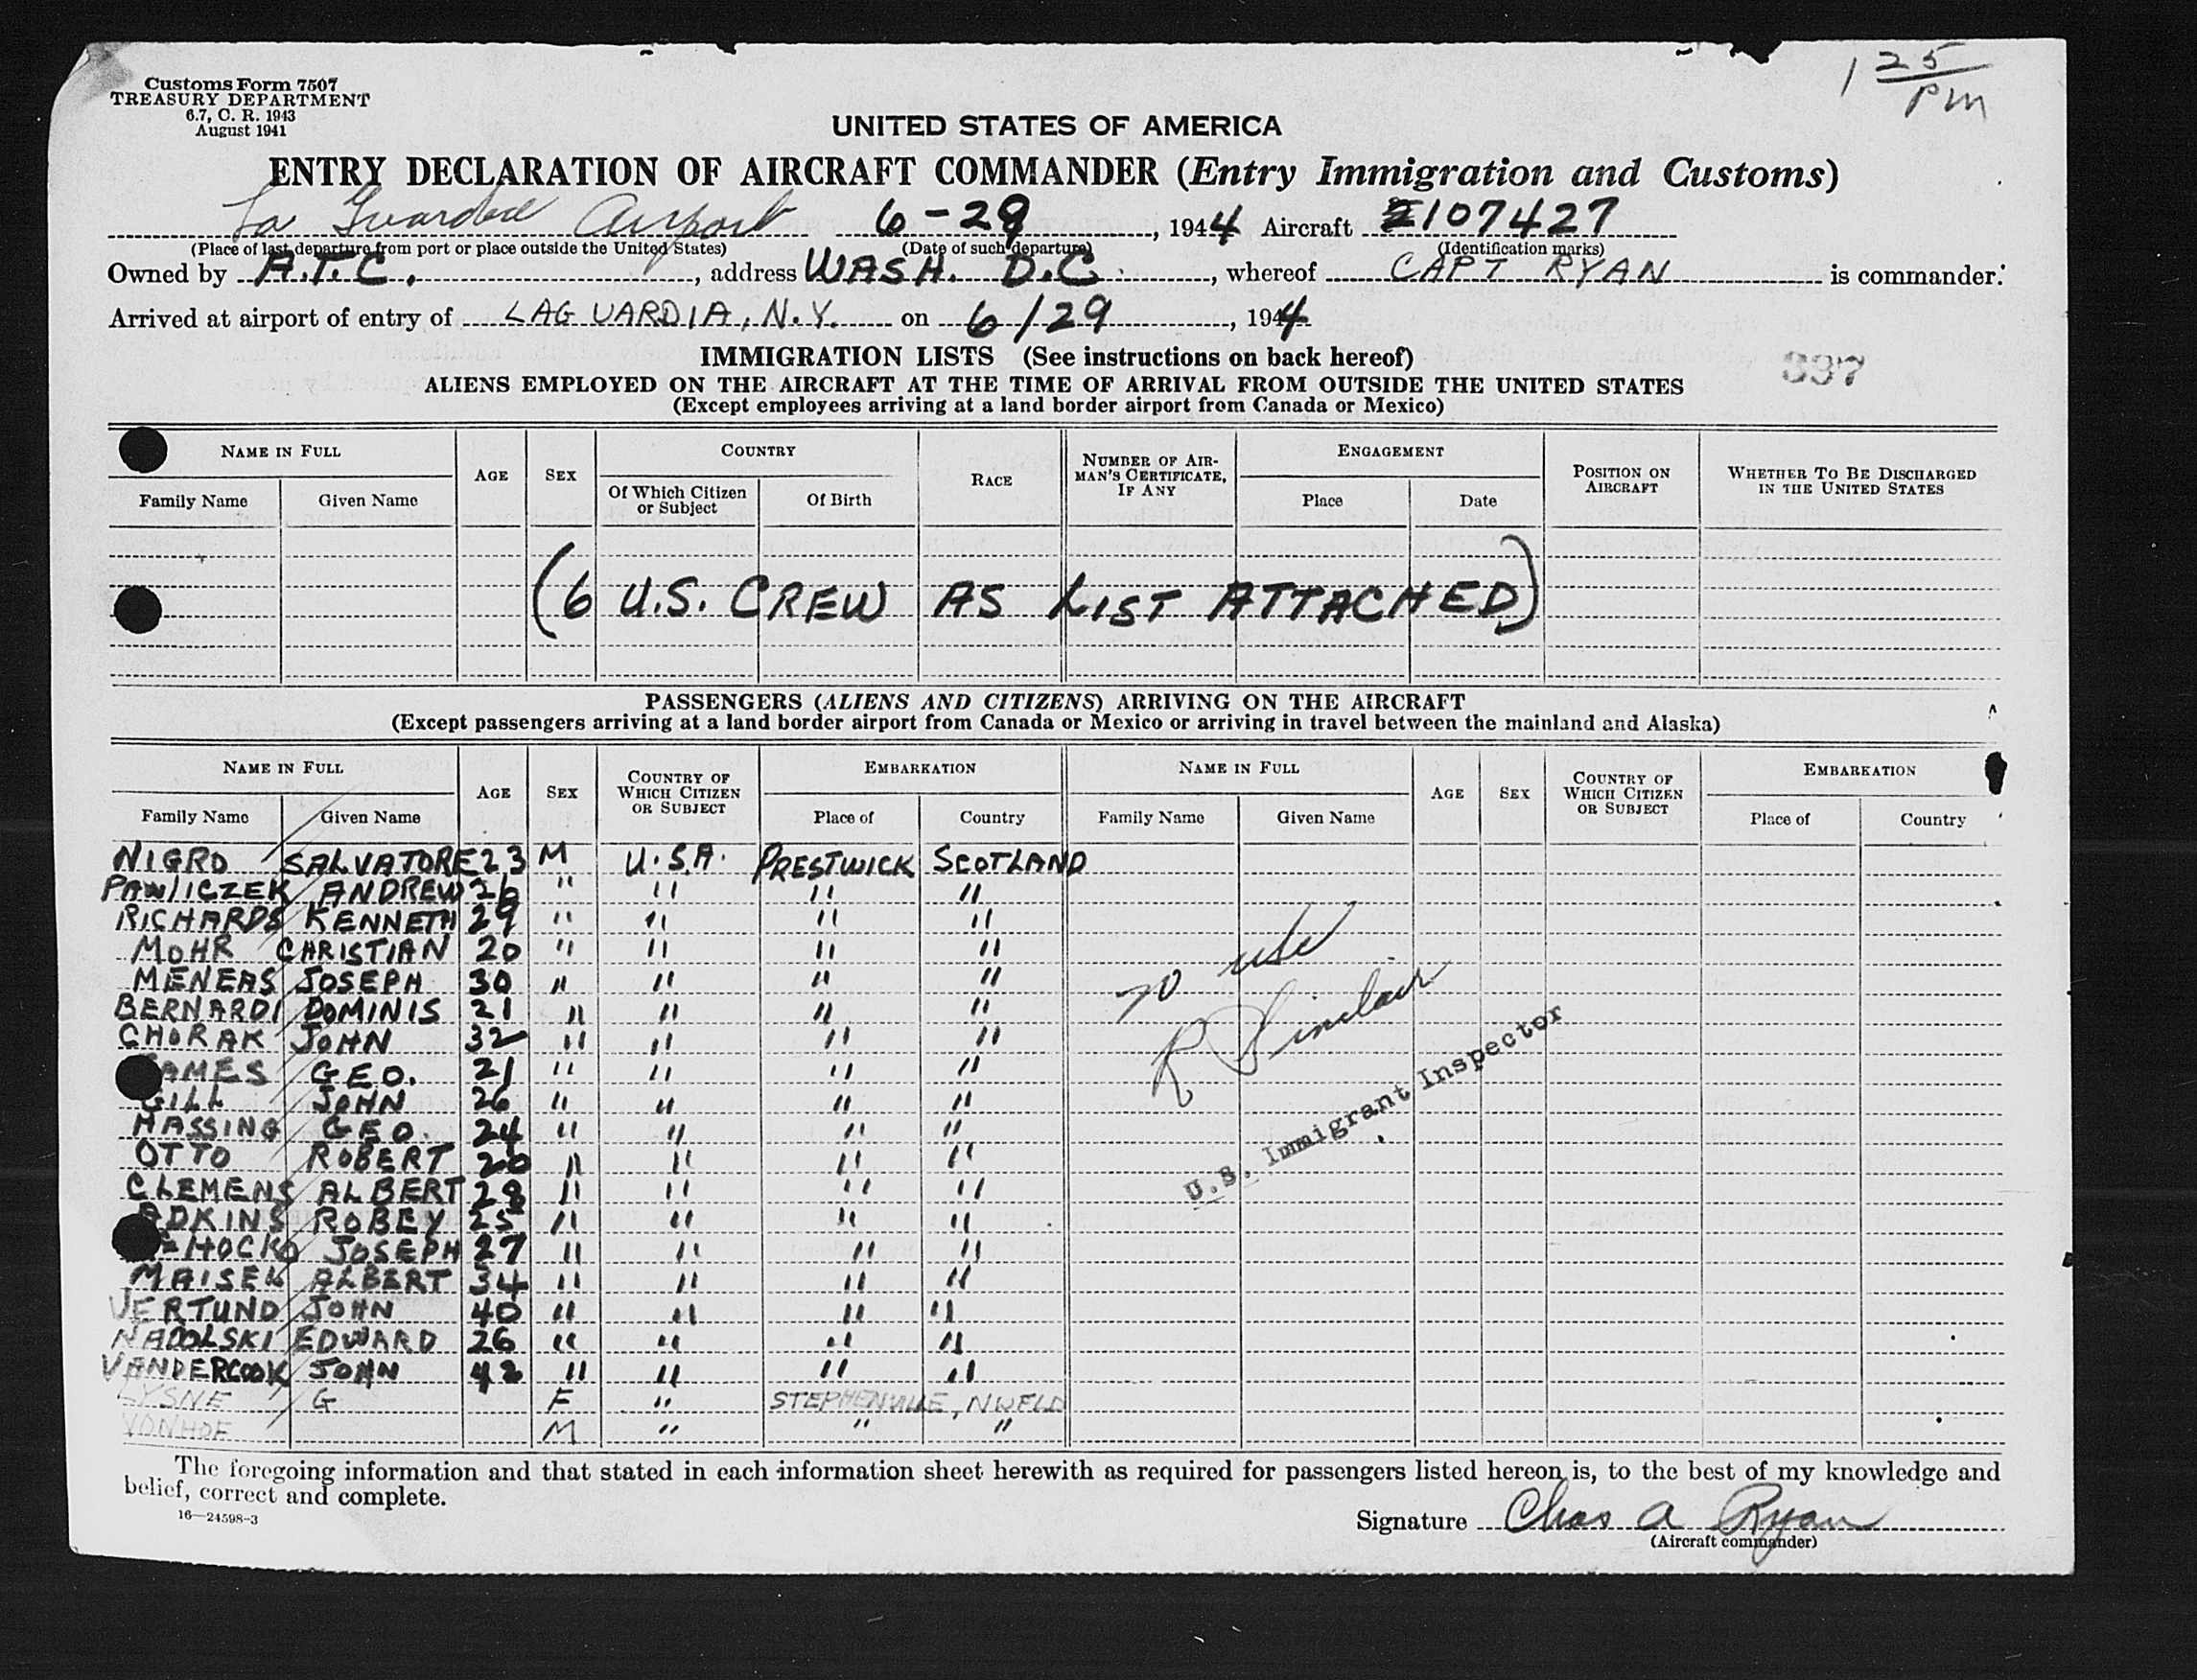 1 25/PM
Customs Form 7507
TREASURY DEPARTMENT
6.7, C. R. 1943
August 1941
UNITED STATES OF AMERICA
ENTRY DECLARATION OF AIRCRAFT COMMANDER (Entry Immigration and Customs)
La Guardia Airport 6-29, 1944 Aircraft 2107427
(Place of last departure from port or place outside the United States) (Date of such departure) (Identification marks)
Owned by A.T.C., address WASH. D.C., whereof CAPT RYAN is commander.
Arrived at airport of entry of LAGUARDIA, N.Y. on 6/29, 1944
IMMIGRATION LISTS (See instructions on back hereof)
397
ALIENS EMPLOYED ON THE AIRCRAFT AT THE TIME OF ARRIVAL FROM OUTSIDE THE UNITED STATES
(Except employees arriving at a land border airport from Canada or Mexico)
NAME IN FULL AGE SEX COUNTRY RACE NUMBER OF AIRMAN'S CERTIFICATE, IF ANY ENGAGEMENT POSITION ON AIRCRAFT WHETHER TO BE DISCHARGED IN THE UNITED STATES
Family Name Given Name Of Which Citizen or Subject Of Birth Place Date
(6 U.S. CREW AS LIST ATTACHED)
PASSENGERS (ALIENS AND CITIZENS) ARRIVING ON THE AIRCRAFT
(Except passengers arriving at a land border airport from Canada or Mexico or arriving in travel between the mainland and Alaska)
NAME IN FULL AGE SEX COUNTRY OF WHICH CITIZEN OR SUBJECT EMBARKATION NAME IN FULL AGE SEX COUNTRY OF WHICH CITIZEN OR SUBJECT EMBARKATION
Family Name Given Name Place of Country Family Name Given Name Place of Country
NIGRO SALVATORE 23 M U.S.A. PRESTWICK SCOTLAND
PAWLICZEK ANDREW 26 " " " "
RICHARDS KENNETH 29 " " " "
MOHR CHRISTIAN 20 " " " "
MENEAS JOSEPH 30 " " " "
BERNARDI DOMINIS 21 " " " "
CHORAK JOHN 32 " " " "
AMES GEO. 21 " " " "
GILL JOHN 26 " " " "
HASSING GEO. 24 " " " "
OTTO ROBERT 20 " " " "
CLEMENS ALBERT 28 " " " "
ADKINS ROBEY 25 " " " "
JOSEPH 27 " " " "
MAISEL ALBERT 34 " " " "
VERTUND JOHN 40 " " " "
NADOLSKI EDWARD 26 " " " "
VANDERCOOK JOHN 42 " " " "
LYSNE G F " STEPHENVILLE, NWFLD
VONHOF M " " "
R Sinclair
U.S. Immigrant Inspector
The foregoing information and that stated in each information sheet herewith as required for passengers listed hereon is, to the best of my knowledge and
belief, correct and complete.
16—24598-3
Signature Chas A Ryan
(Aircraft commander)